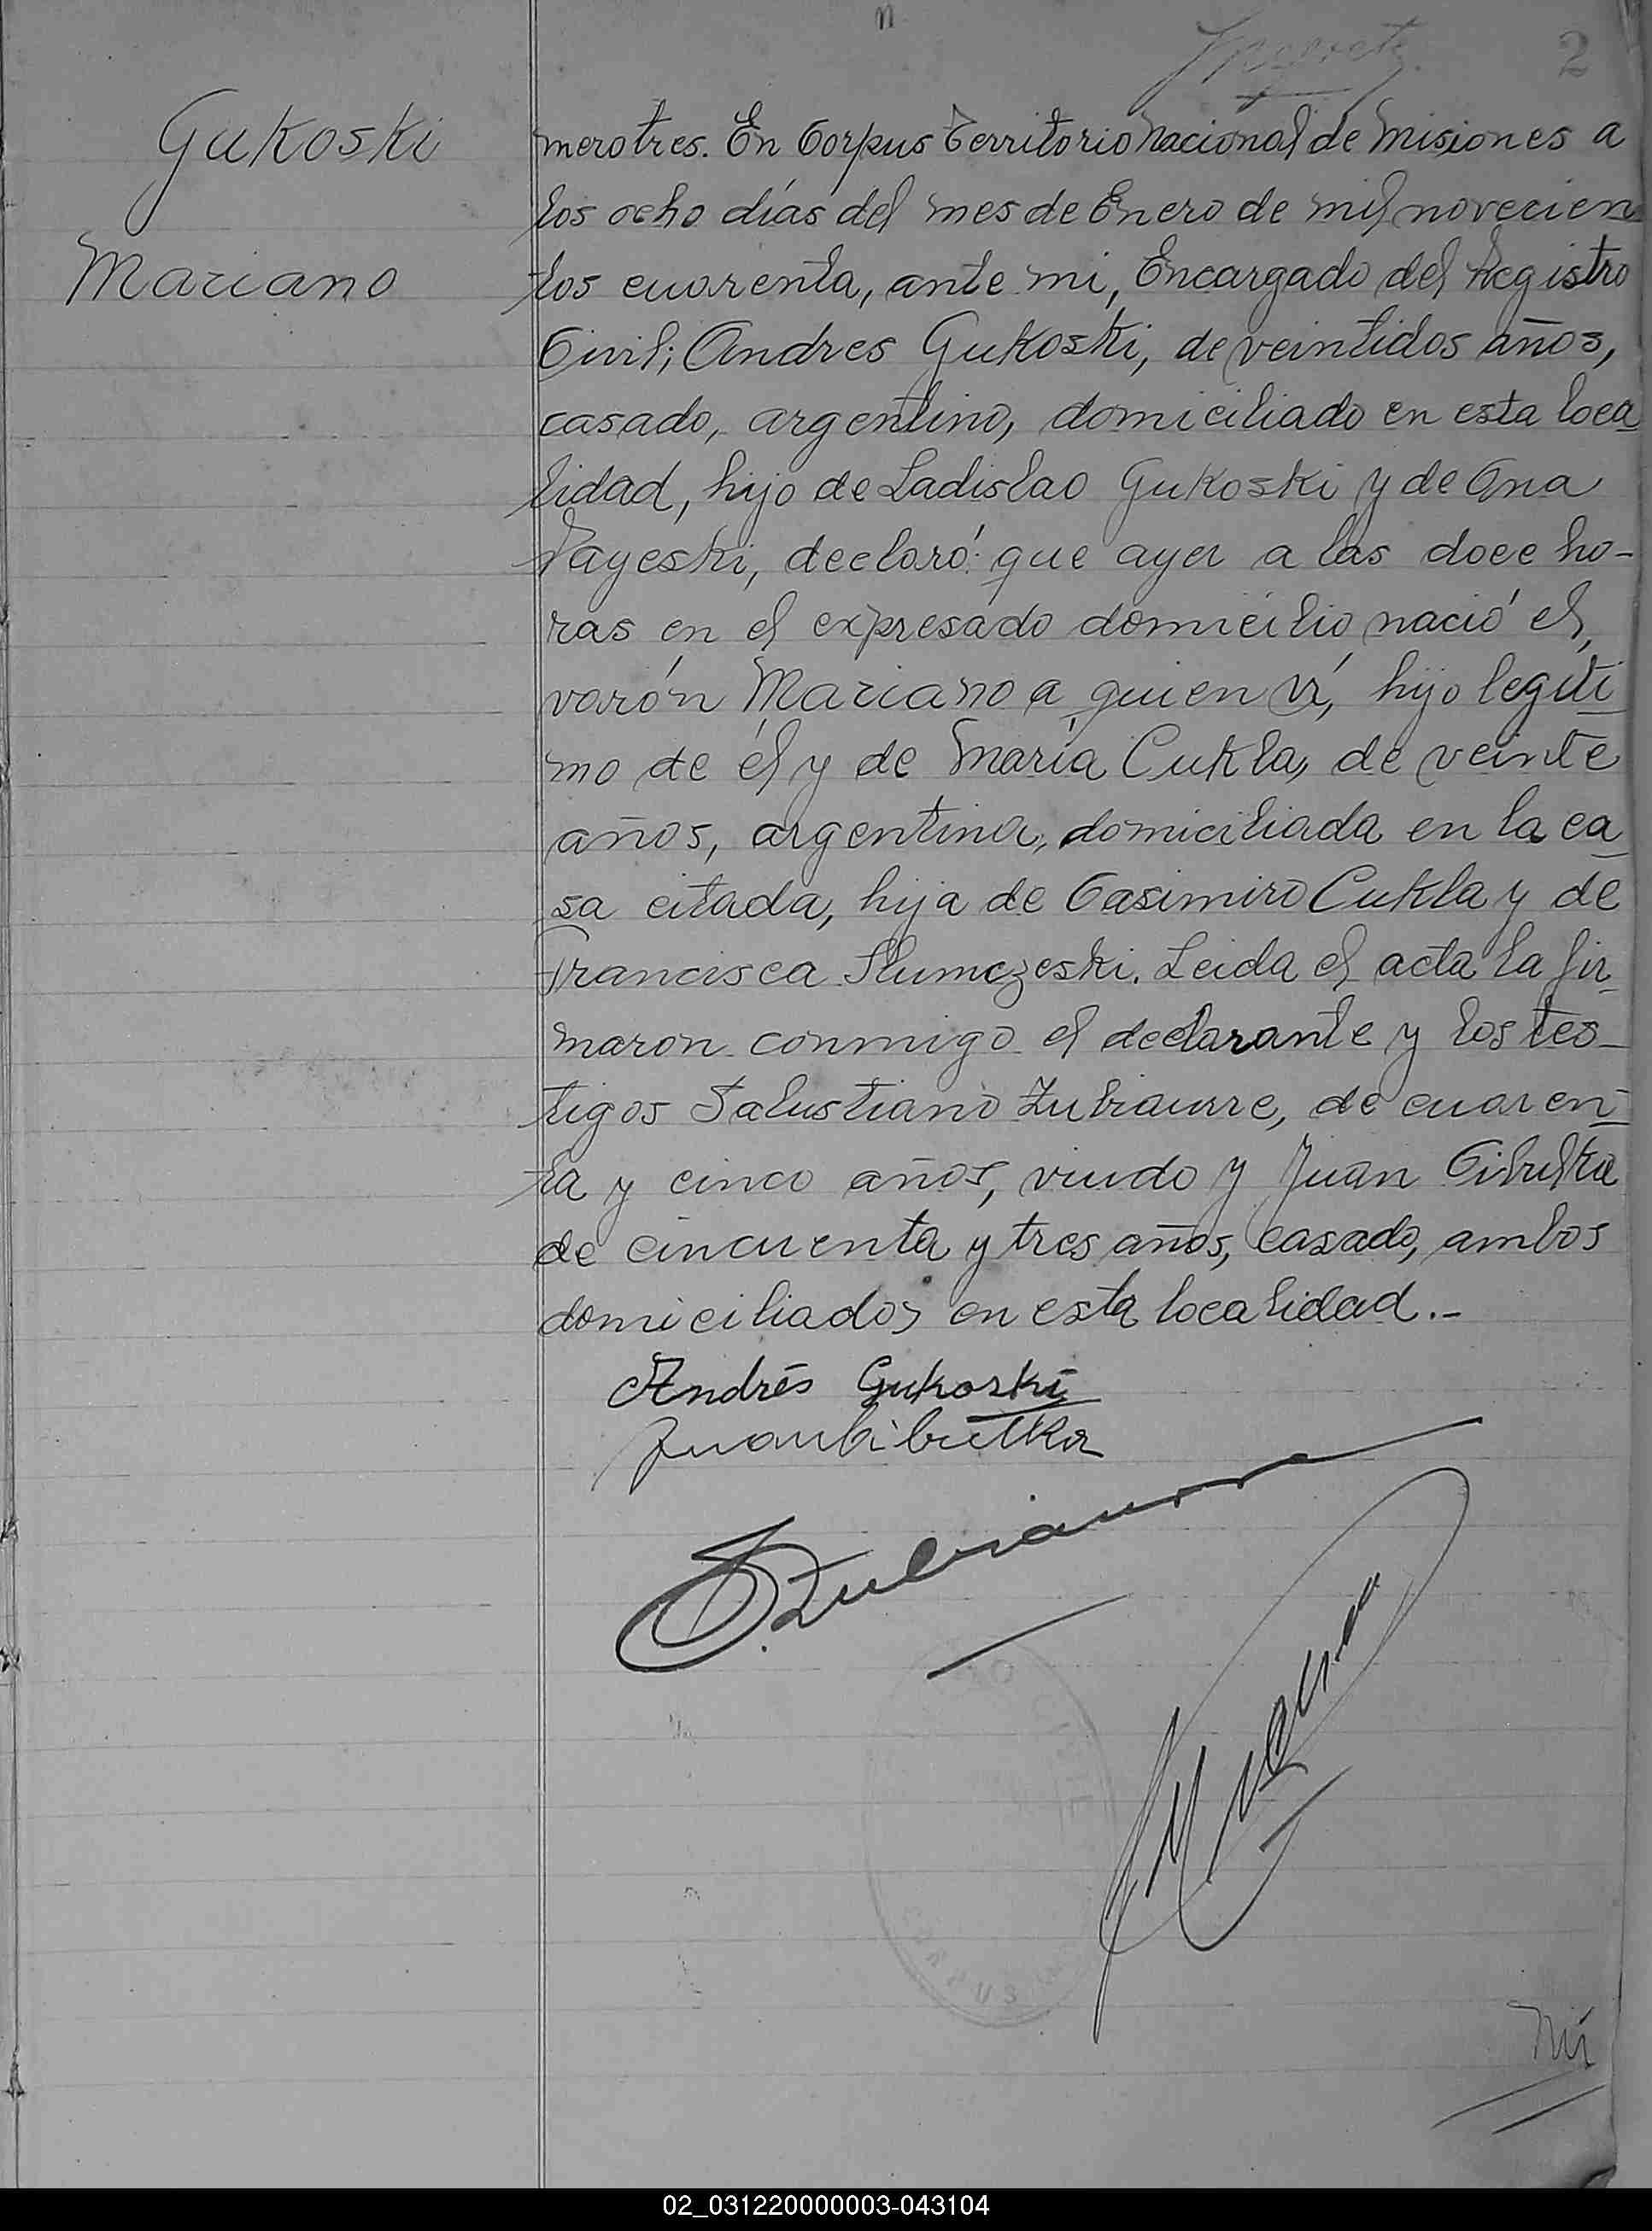 2
Gukoski
Mariano
mero tres. En Corpus Territorio Nacional de Misiones a
los ocho días del mes de Enero de mil novecien
tos cuarenta, ante mi, Encargado del Registro
Civil; Andres Gukoski, de veintidos años,
casado, argentino, domiciliado en esta loca
lidad, hijo de Ladislao Gukoski y de Ana
Payeski, declaró: que ayer a las doce ho-
ras en el expresado domicilio nació el
varón Mariano a quien ví, hijo legíti
mo de él y de María Cukla, de veinte
años, argentina, domiciliada en la ca
sa citada, hija de Casimiro Cukla y de
Francisca Slumczeski. Leida el acta la fir
maron conmigo el declarante y los tes-
tigos Salustiano Zubiaurre, de cuaren
ta y cinco años, viudo y Juan Cibulka
de cincuenta y tres años, casado, ambos
domiciliados en esta localidad.-
Andrés Gukoski
Juan Cibulka
S. Zubiaurre
Nú
02_031220000003-043104